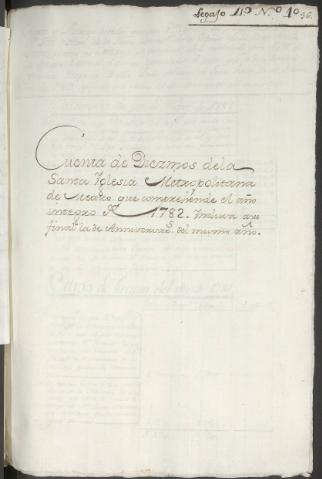 Legajo 11º N.º 1º
Cuenta de Diezmos dela
Santa Yglesia Metropolitana
de Mexico que comprehende el año
integro de 1782. Incluía a su
final la de Anniversarios del mismo año.